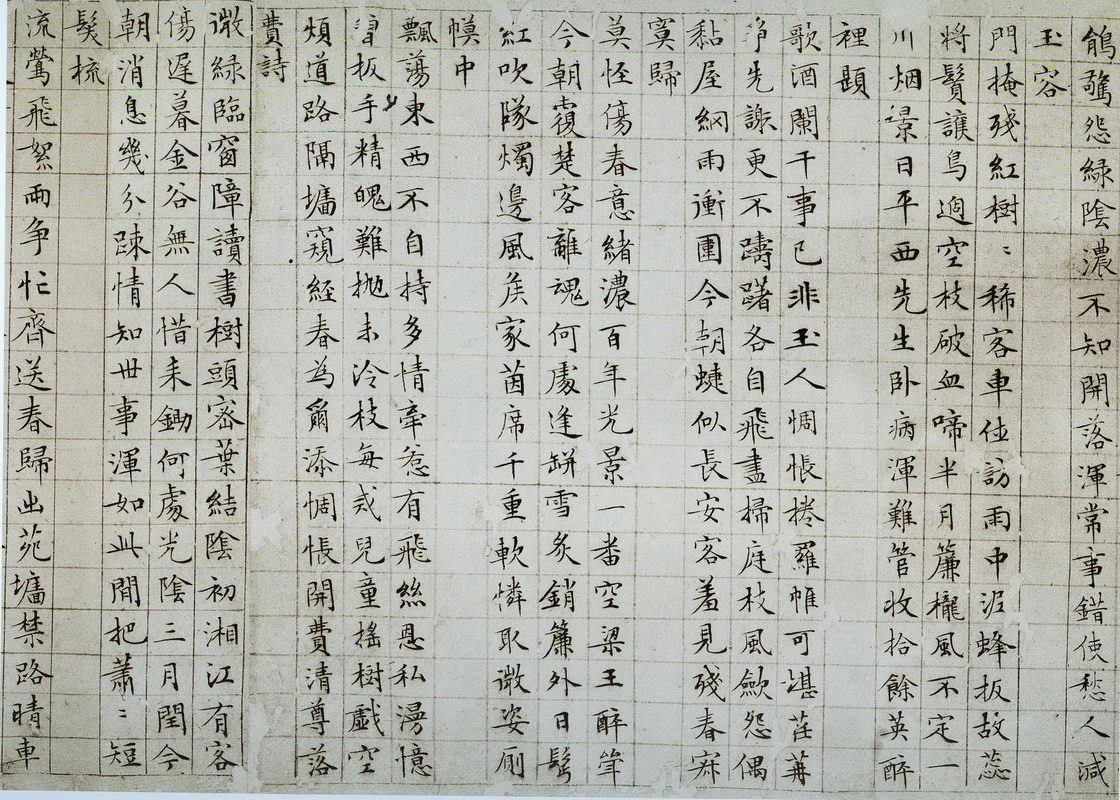 鵑聲怨綠陰濃不知開落渾常事錯使愁人減
玉容
門掩殘紅樹〻稀客車佳訪雨中泥蜂扳故蕊
將鬚護鳥過空枝破血啼半月簾櫳風不定一
川烟景日平西先生卧病渾難管收拾餘英醉
裡題
歌酒闌干事已非玉人惆悵捲羅帷可堪荏苒
爭先謝更不躊躇各自飛盡掃庭枝風歛怨偶
黏屋網雨衝圍今朝蜨似長安客羞見殘春寂
寞歸
莫怪傷春意緒濃百年光景一番空梁王醉聳
今朝覆楚客離魂何處逢缾雪炙銷簾外日髩
紅吹隊燭邊風矦家茵席千重軟憐取微姿廁
幙中
飄蕩東西不自持多情牽惹有飛絲恩私漫憶
曾扳手精魄難抛未冷枝每戒兒童搖樹戲空
煩道路隔墻窺經春為爾添惆悵開費清尊落
費詩
微綠臨窗障讀書樹頭密葉結陰初湘江有客
傷遲暮金谷無人惜耒鋤何處光陰三月閏今
朝消息幾分踈情知世事渾如此間把蕭〻短
髮梳
流鶯飛絮兩爭忙齊送春歸出苑墻禁路晴車